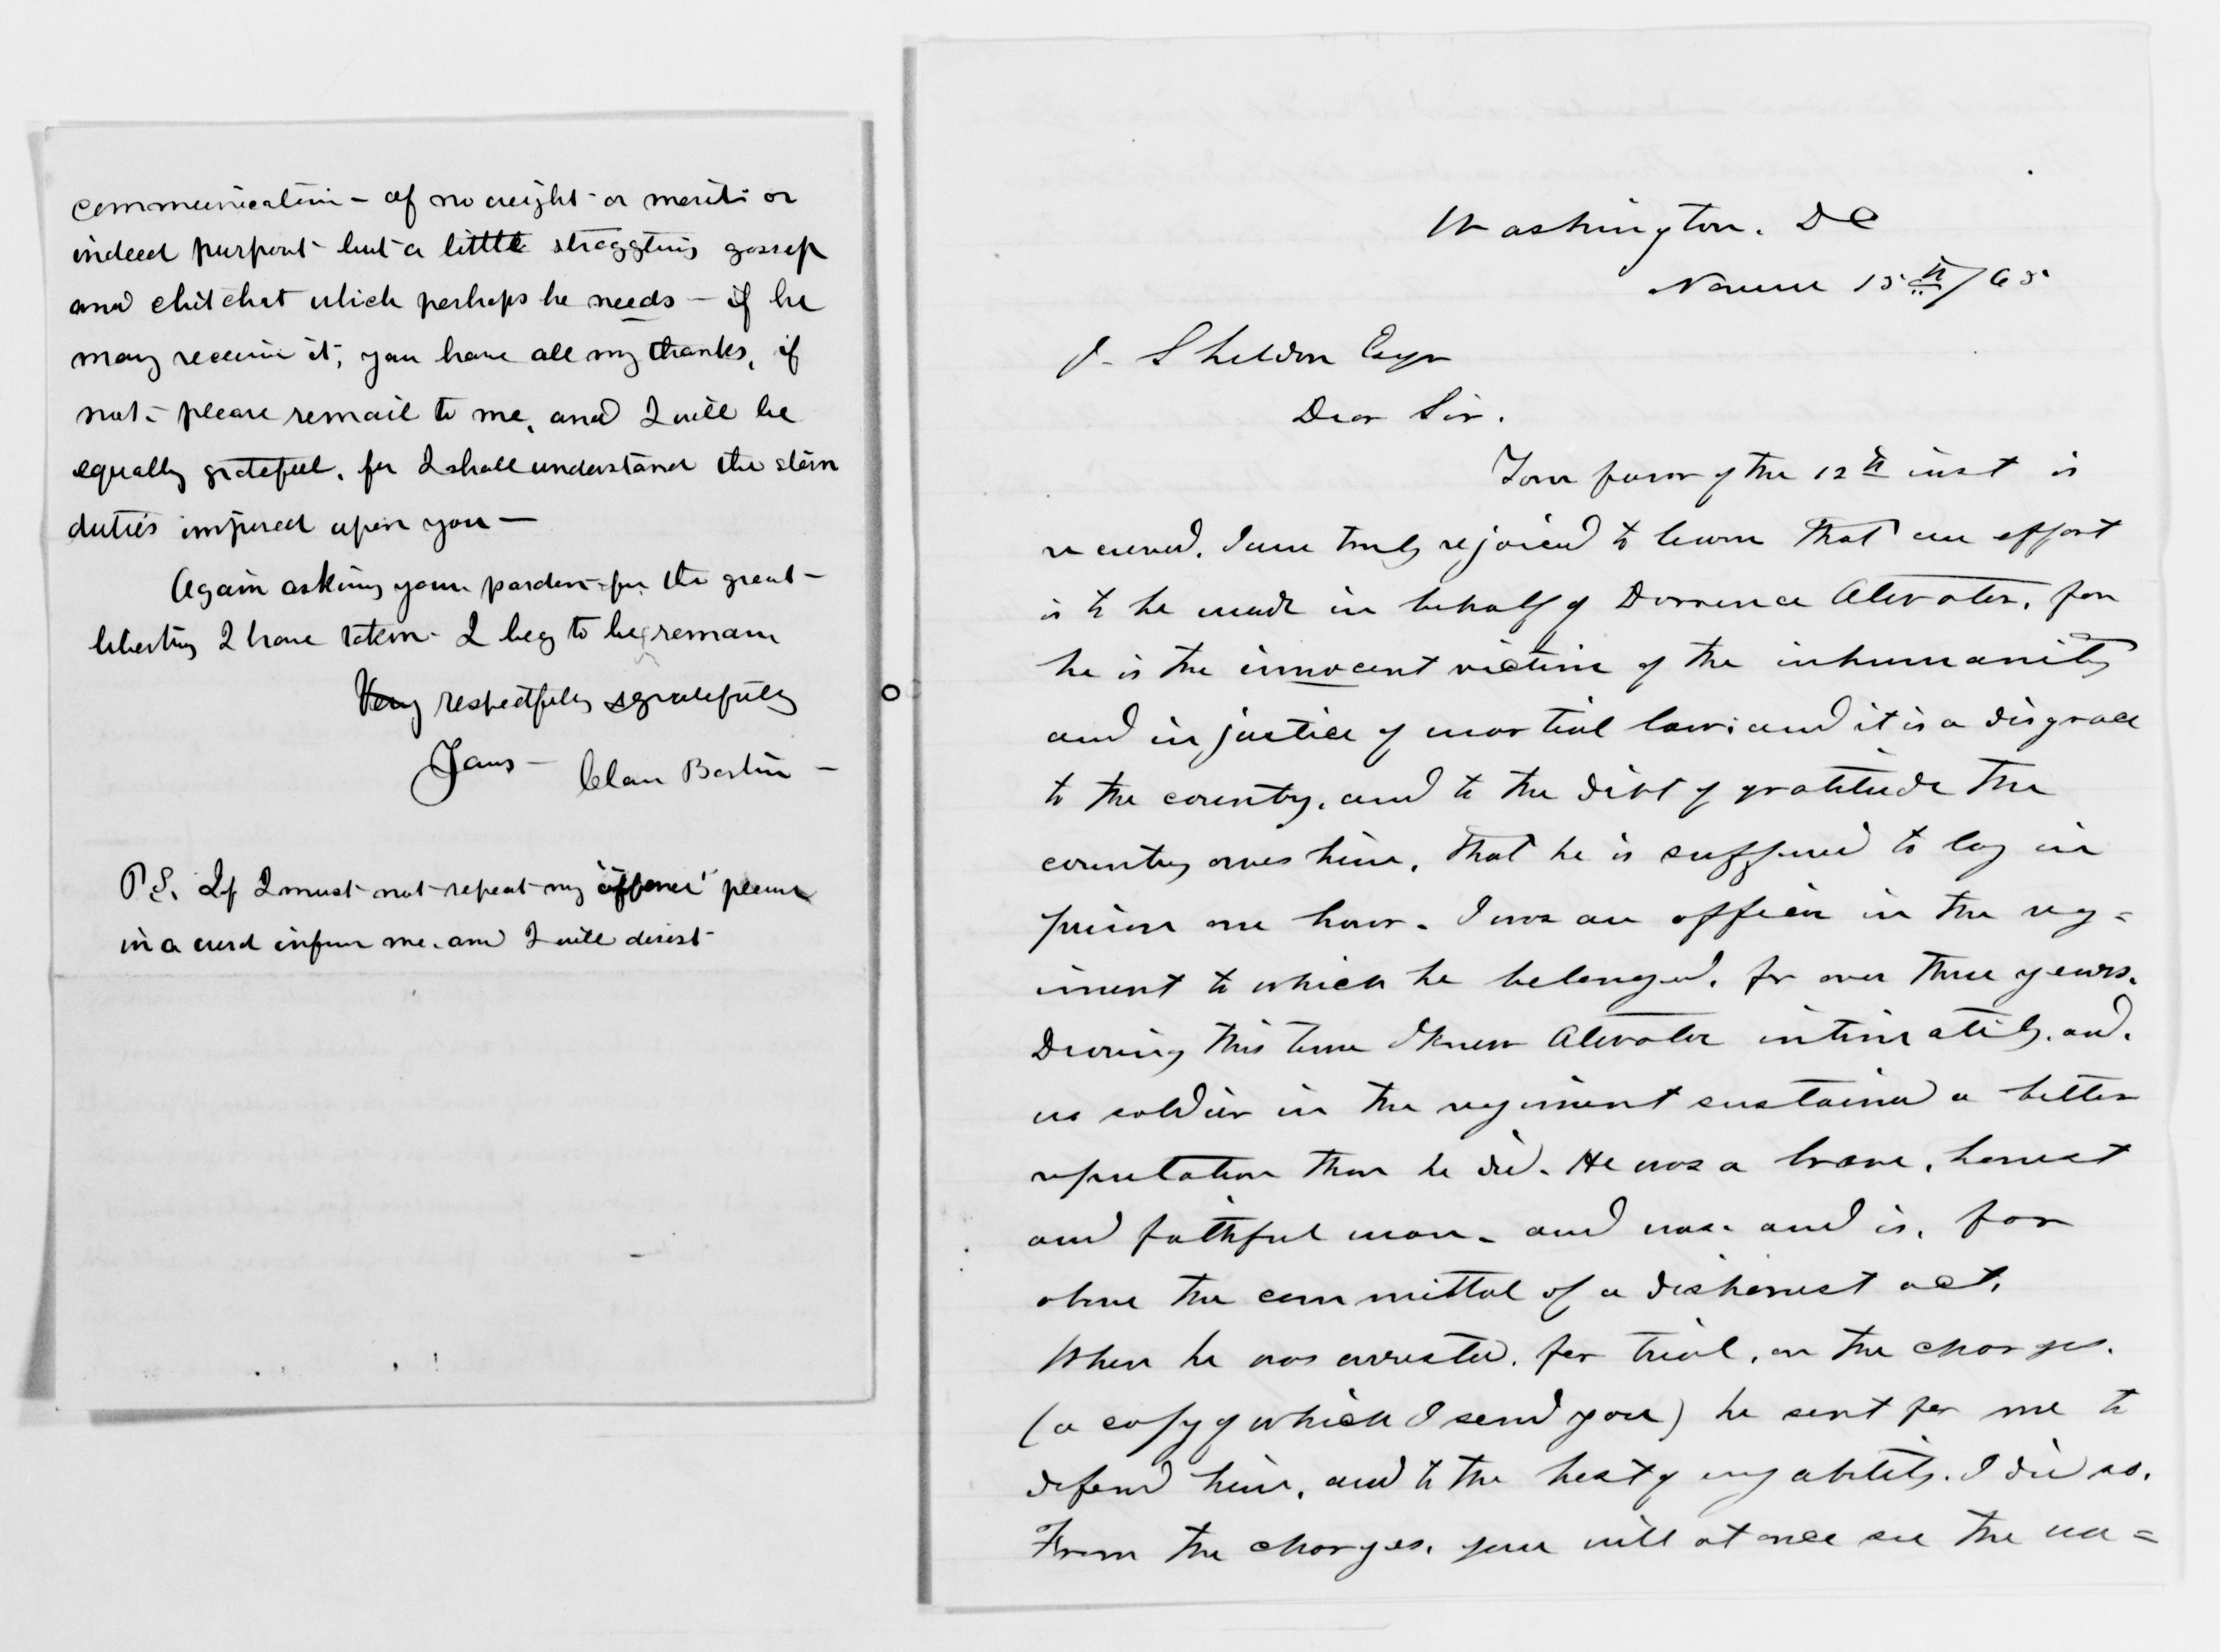 communication - of no weight or merit or
indeed purport but a little straggling gossip
and chit chat which perhaps he needs - if he
may receive it, you have all my thanks, if
not - please remail to me, and I will be
equally grateful, for I shall understand the stern
duties imposed upon you -
Again asking your pardon for the great -
liberty I have taken - I beg to be remain
Very respectfully & gratefully
Yours - Clara Barton -
P.S. If I must not repeat my 'offence' please
in a word inform me and I will desist -
Washington. DC
15th/65
J. Sheldon Esqr
Dear Sir.
Your favor of the 12th inst is
received. I am truly rejoiced to learn that an effort
is to be made in behalf of Dorrence Atwater, for
he is the innocent victim of the inhumanity
and injustice of martial law; and it is a disgrace
to the country, and to the debt of gratitude the
country owes him, that he is suffered to lay in
prison one hour. I was an officer in the reg=
iment to which he belonged, for over three years.
During this time I knew Atwater intimately, and
no soldier in the regiment sustained a better
reputation than he did. He was a brave, honest
and faithful man - and was and is, far
above the committal of a dishonest act.
When he was arrested, for trial, on the charges.
(a copy of which I send you) he sent for me to
defend him, and to the best of my ability. I did so.
From the charges, you will at once see the un=